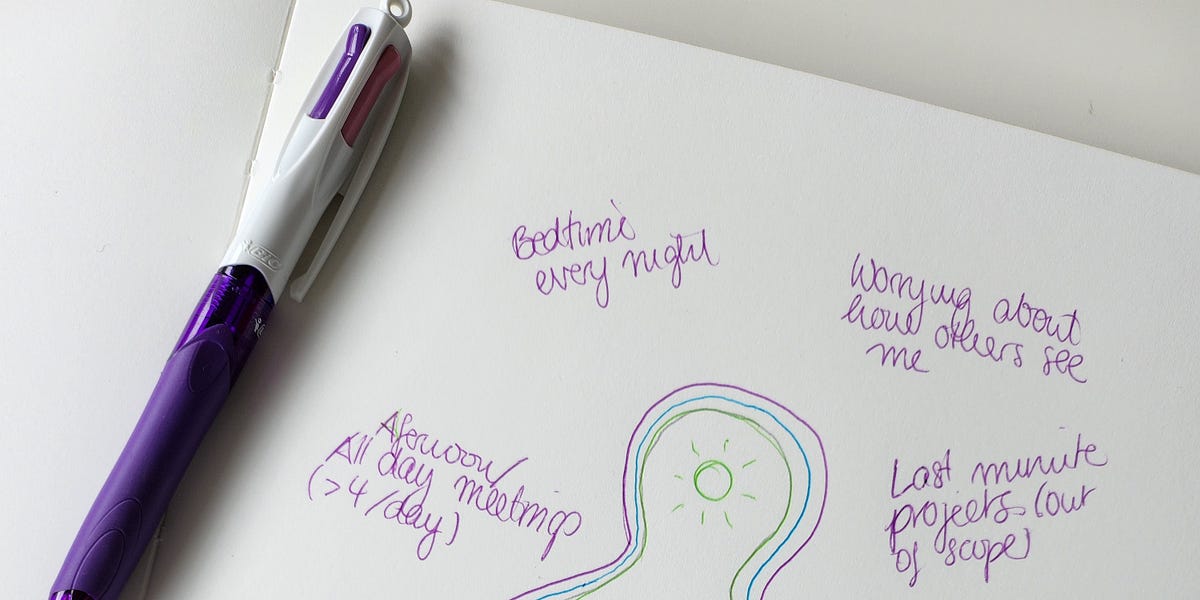 BIC
Bedtime
every night
Worrying about
how others see
me
Afernoon/
All day meetings
(>4/day)
Last minute
projects (out
of scope)